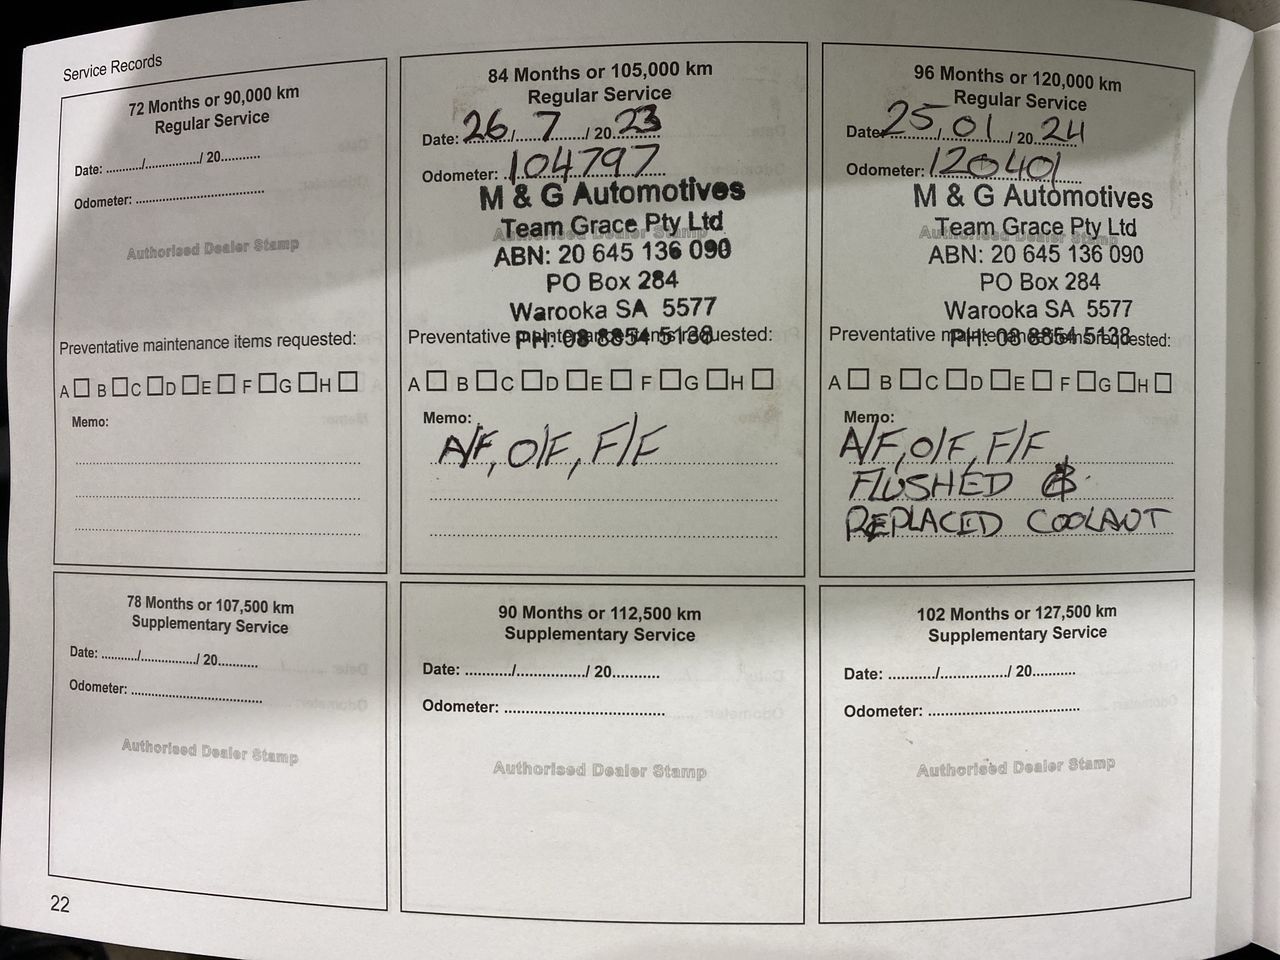 Service Records
72 Months or 90,000 km
Regular Service
Date: .........../................/ 20...........
Odometer: .....................................
Authorised Dealer Stamp
Preventative maintenance items requested:
A☐ B☐ C☐ D☐ E☐ F☐ G☐ H☐
Memo:
84 Months or 105,000 km
Regular Service
Date: 26/ 7 / 20 23
Odometer: 104797
Authorised Dealer Stamp
M & G Automotives
Team Grace Pty Ltd
ABN: 20 645 136 090
PO Box 284
Warooka SA 5577
PH: 08 8854 5138
Preventative maintenance items requested:
A☐ B☐ C☐ D☐ E☐ F☐ G☐ H☐
Memo:
A/F, O/F, F/F
96 Months or 120,000 km
Regular Service
Date: 25/ 01 / 20 24
Odometer: 120401
Authorised Dealer Stamp
M & G Automotives
Team Grace Pty Ltd
ABN: 20 645 136 090
PO Box 284
Warooka SA 5577
PH: 08 8854 5138
Preventative maintenance items requested:
A☐ B☐ C☐ D☐ E☐ F☐ G☐ H☐
Memo:
A/F, O/F, F/F,
FLUSHED &
REPLACED COOLANT
78 Months or 107,500 km
Supplementary Service
Date: .........../................/ 20...........
Odometer: .....................................
Authorised Dealer Stamp
90 Months or 112,500 km
Supplementary Service
Date: .........../................/ 20...........
Odometer: .....................................
Authorised Dealer Stamp
102 Months or 127,500 km
Supplementary Service
Date: .........../................/ 20...........
Odometer: .....................................
Authorised Dealer Stamp
22